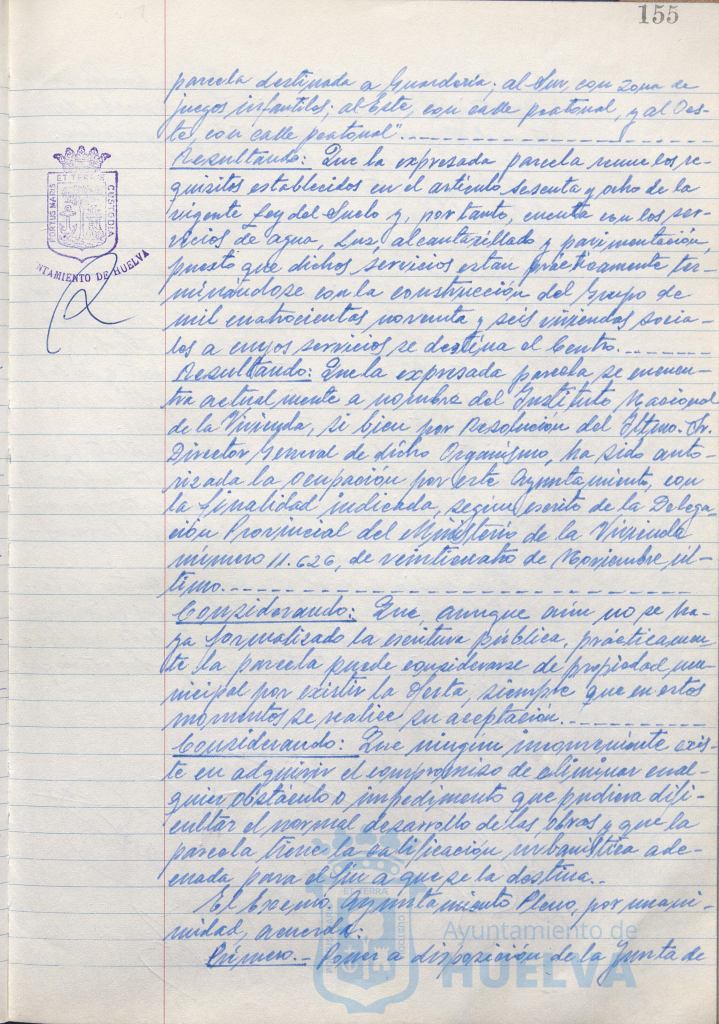 155
parcela destinada a Guardería; al Sur, con zona de
juegos infantiles; al Este, con calle peatonal, y al Oes-
te, con calle peatonal".
Resultando: Que la expresada parcela reune los re-
quisitos establecidos en el artículo sesenta y ocho de la
vigente Ley del Suelo y, por tanto, cuenta con los ser-
vicios de agua, luz, alcantarillado y pavimentación,
puesto que dichos servicios estan prácticamente ter-
minándose con la construcción del Grupo de
mil cuatrocientas noventa y seis viviendas socia-
les a cuyos servicios se destina el Centro.
Resultando: Que la expresada parcela se encuen-
tra actualmente a nombre del Instituto Nacional
de la Vivienda, si bien por Resolución del Iltmo. Sr.
Director General de dicho Organismo, ha sido auto-
rizada la ocupación por este Ayuntamiento, con
la finalidad indicada, según escrito de la Delega-
ción Provincial del Ministerio de la Vivienda
número 11.626, de veinticuatro de Noviembre úl-
timo.
Considerando: Que aunque aún no se ha-
ya formalizado la escritura pública, prácticamen-
te la parcela puede considerarse de propiedad mu-
nicipal por existir la oferta, siempre que en estos
momentos se realice su aceptación.
Considerando: Que ningún inconveniente exis-
te en adquirir el compromiso de eliminar cual-
quier obstáculo o impedimento que pudiera difi-
cultar el normal desarrollo de las obras y que la
parcela tiene la calificación urbanística ade-
cuada para el fin a que se la destina.
El Excmo. Ayuntamiento Pleno, por unani-
midad, acuerda:
Primero.- Poner a disposición de la Junta de
PORTUS MARIS ET TERRAE CUSTODIA
NTAMIENTO DE HUELVA
Ayuntamiento de
HUELVA